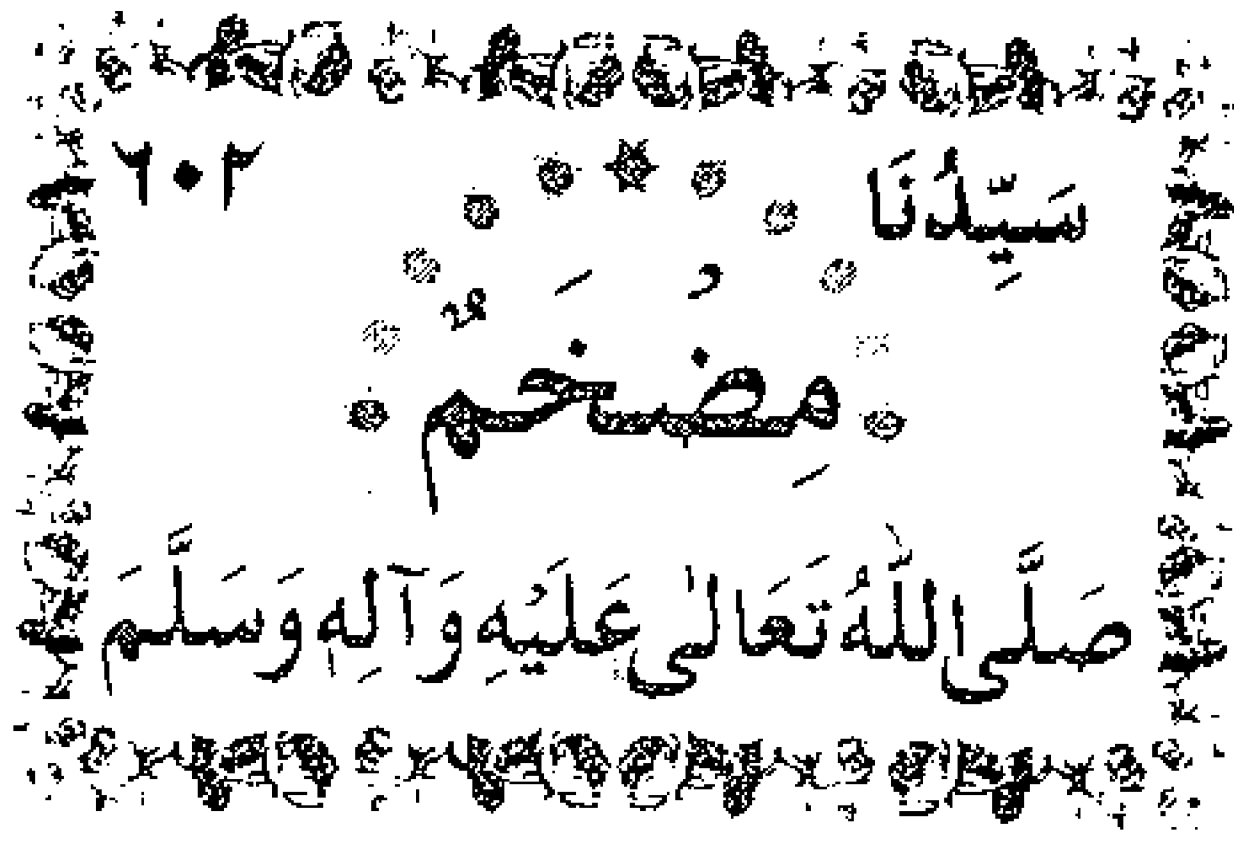 سَيِّدُنَا ٦٠٢
مِضْخَمٌ
صَلَّى اللّٰهُ تَعَالىٰ عَلَيْهِ وَآلِهِ وَسَلَّمَ